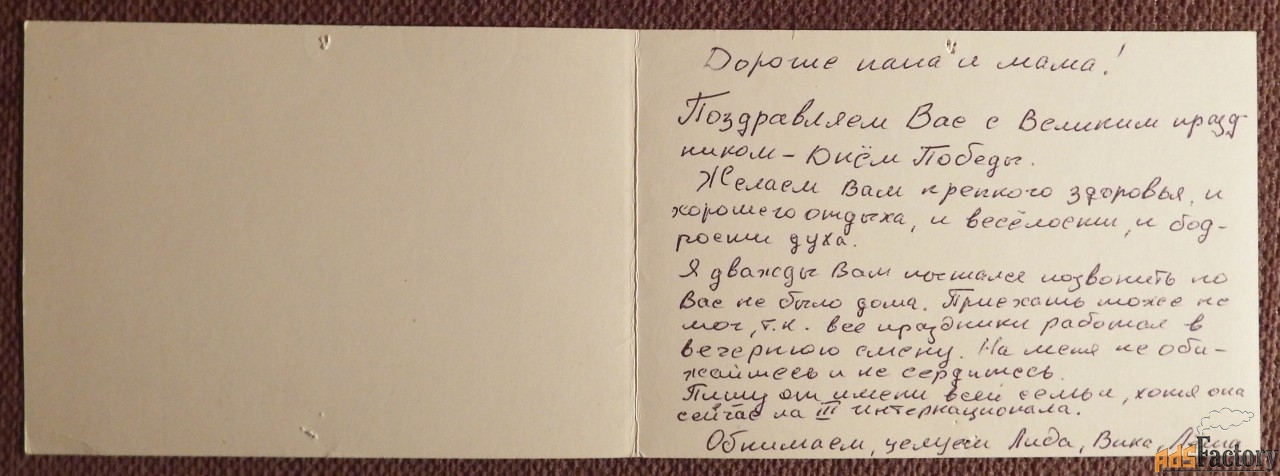 Дорогие папа и мама!
Поздравляем Вас с Великим празд
ником - Днём Победы.
Желаем Вам крепкого здоровья, и
хорошего отдыха, и весёлости, и бод-
рости духа.
Я дважды Вам пытался позвонить но
Вас не было дома. Приехать тоже не
мог, т.к. все праздники работал в
вечернюю смену. На меня не оби-
жайтесь и не сердитесь.
Пишу от имени всей семьи, хотя она
сейчас на III интернационала.
Обнимаем, целуем Лида, Вика,
AdsFactory